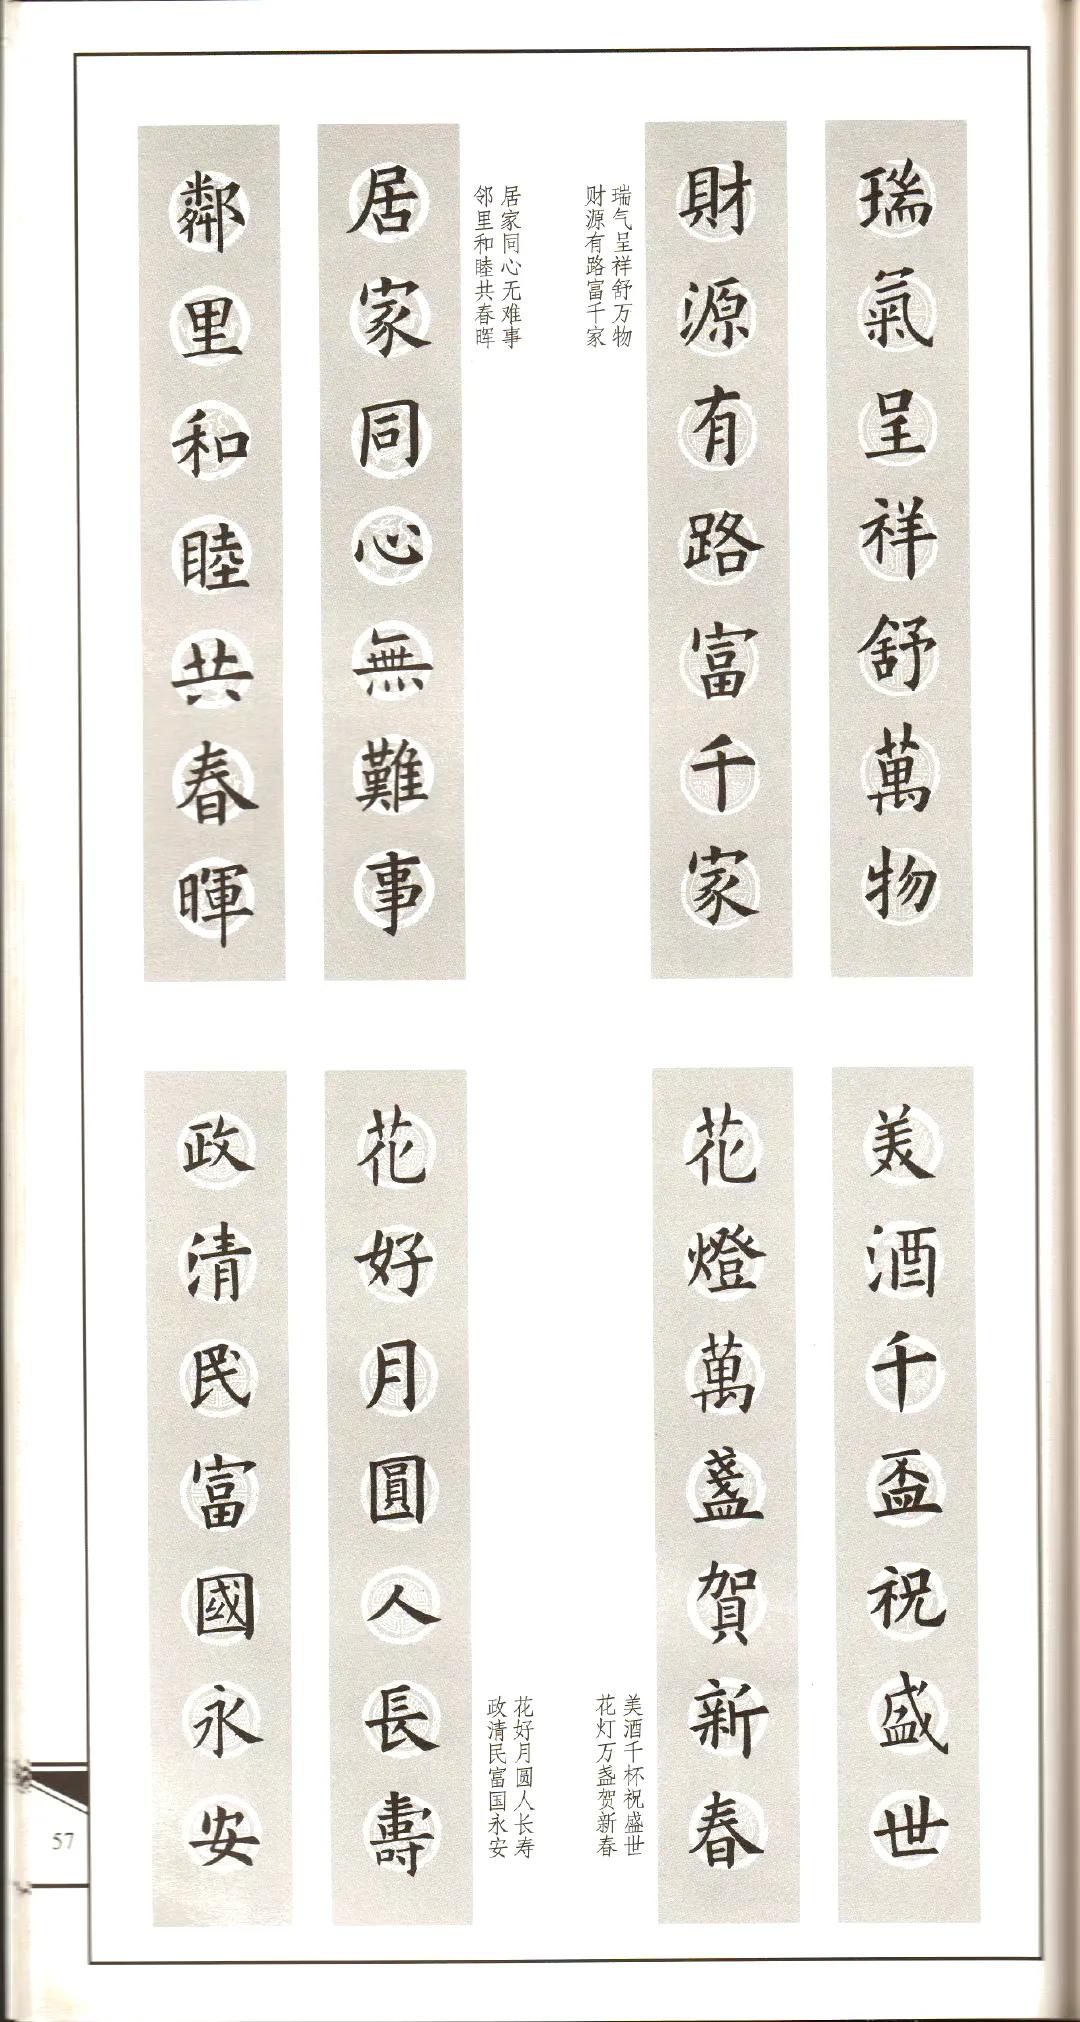 瑞氣呈祥舒萬物
財源有路富千家
瑞气呈祥舒万物
财源有路富千家
居家同心無難事
鄰里和睦共春暉
居家同心无难事
邻里和睦共春晖
美酒千盃祝盛世
花燈萬盞賀新春
美酒千杯祝盛世
花灯万盏贺新春
花好月圓人長壽
政清民富國永安
花好月圆人长寿
政清民富国永安
57